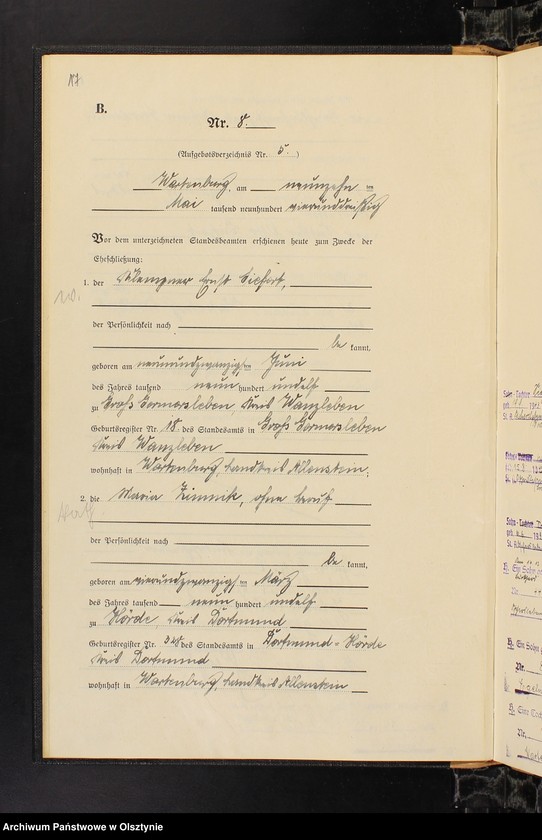 117
B.
Nr. 8.
(Aufgebotsverzeichnis Nr. 5.)
Wartenburg, am neunzehn ten
Mai tausend neunhundert vierunddreißig
Vor dem unterzeichneten Standesbeamten erschienen heute zum Zwecke der
Eheschließung:
1. der Klempner Ernst
der Persönlichkeit nach
be kannt,
geboren am neunundzwanzigsten Juni
des Jahres tausend neun hundert undelf
zu Groß Germersleben, Kreis Wanzleben
Geburtsregister Nr. 18. des Standesamts in Groß Germersleben
Kreis Wanzleben
wohnhaft in Wartenburg, Landkreis Allenstein;
2. die Maria Zimnik, ohne Beruf
der Persönlichkeit nach
be kannt,
geboren am vierundzwanzigsten März
des Jahres tausend neun hundert undelf
zu Hörde, Kreis Dortmund
Geburtsregister Nr. 348 des Standesamts in Dortmund-Hörde
Kreis Dortmund
wohnhaft in Wartenburg, Landkreis Allenstein
Archiwum Państwowe w Olsztynie